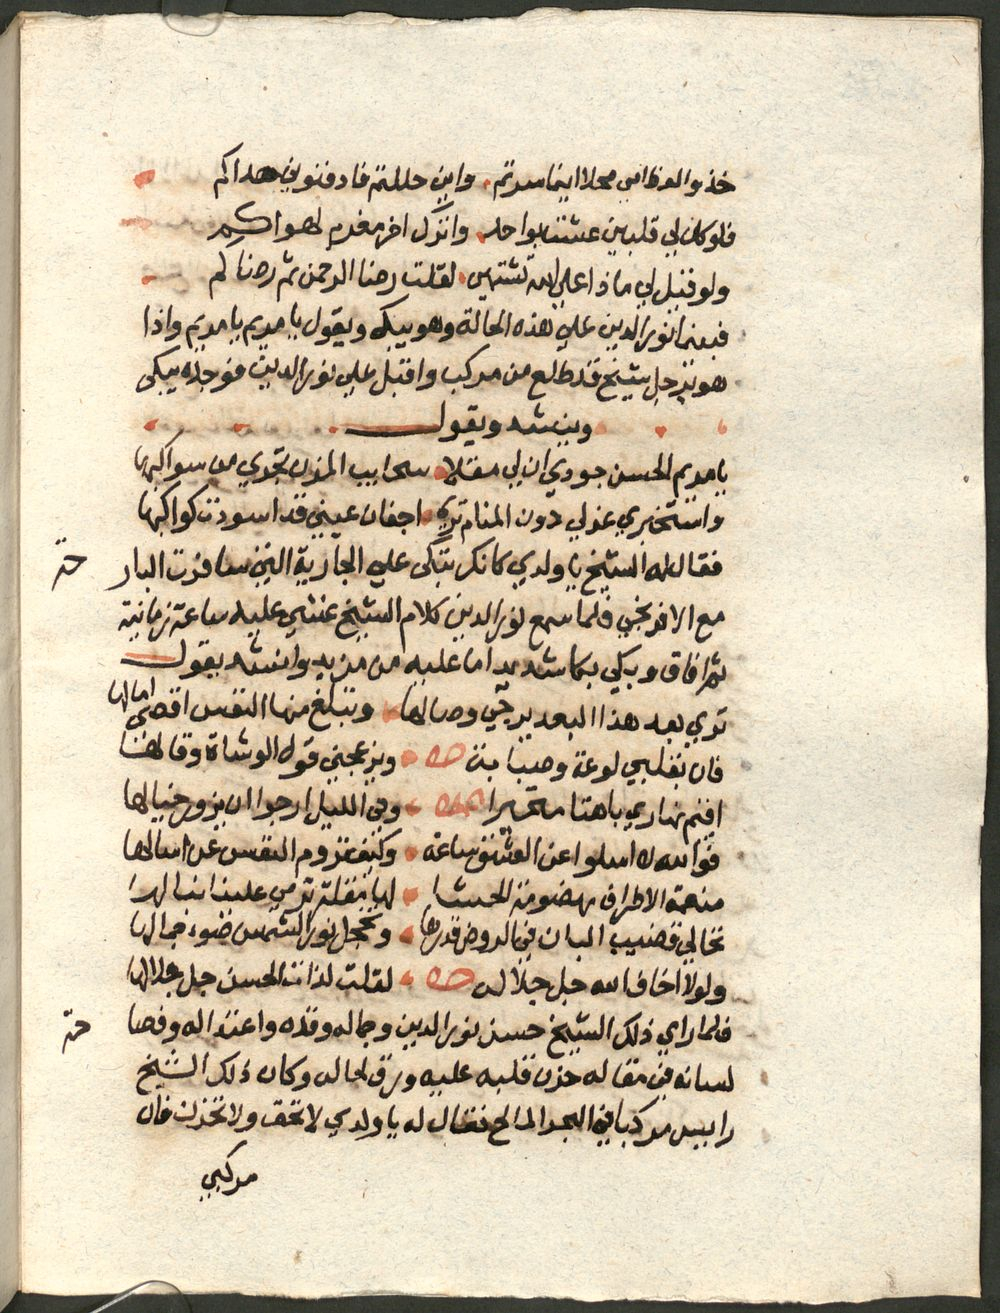 خذوا لعظامي محلا اينما سرتم واين حللتم فادفنوني حداكم
فلو كان لي قلبين عشت بواحد واترك اخر مغرم لهواكم
ولو قيل لي ماذا على الله تشتهي لقلت رضا الرحمن ثم رضاكم
فبينما نور الدين علي هذه الحالة وهو يبكي ويقول يا مريم يا مريم واذا
هو برجل شيخ قد طلع من مركب واقبل علي نور الدين فوجده يبكي
وينشد ويقول
يا مريم الحسن جودي ان لي مقلا سحايب المزن تجري من سواكبها
واستخبري عذلي دون المنام تري اجفان عيني قد اسودت كواكبها
فقال له الشيخ يا ولدي كانك تبكي علي الجارية التي سافرت البار
حتر
مع الافرنجي فلما سمع نور الدين كلام الشيخ غشي عليه ساعة زمانية
ثم افاق وبكي بكا شديدا ما عليه من مزيد وانشد يقول
تري بعد هذا البعد يرجي وصالها وتبلغ منها النفس اقصي امالها
فان بقلبي لوعة وصبابة ويزعجني قول الوشاة وقالها
اقيم نهاري باهتا متحيرا وفي الليل ارجوا ان يزور خيالها
فوالله لا اسلوا عن العشق ساعة وكيف تروم النفس عن اسالها
منعمة الاطراف مهضومة الحشا لها مقلة ترمي علينا نبالها
تحاكي قضيب البان في الروض قدها وتخجل نور الشمس ضوء جمالها
ولولا اخاف الله جل جلاله لقلت لذات الحسن جل جلالها
فلما راي ذلك الشيخ حسن نور الدين وجماله وقده واعتداله وفصا
حتر
لسانه في مقاله حزن قلبه عليه ورق لحاله وكان ذلك الشيخ
راييس مركبا في البحر المالح فقال له يا ولدي لا تخف ولا تحزن فان
مركبي